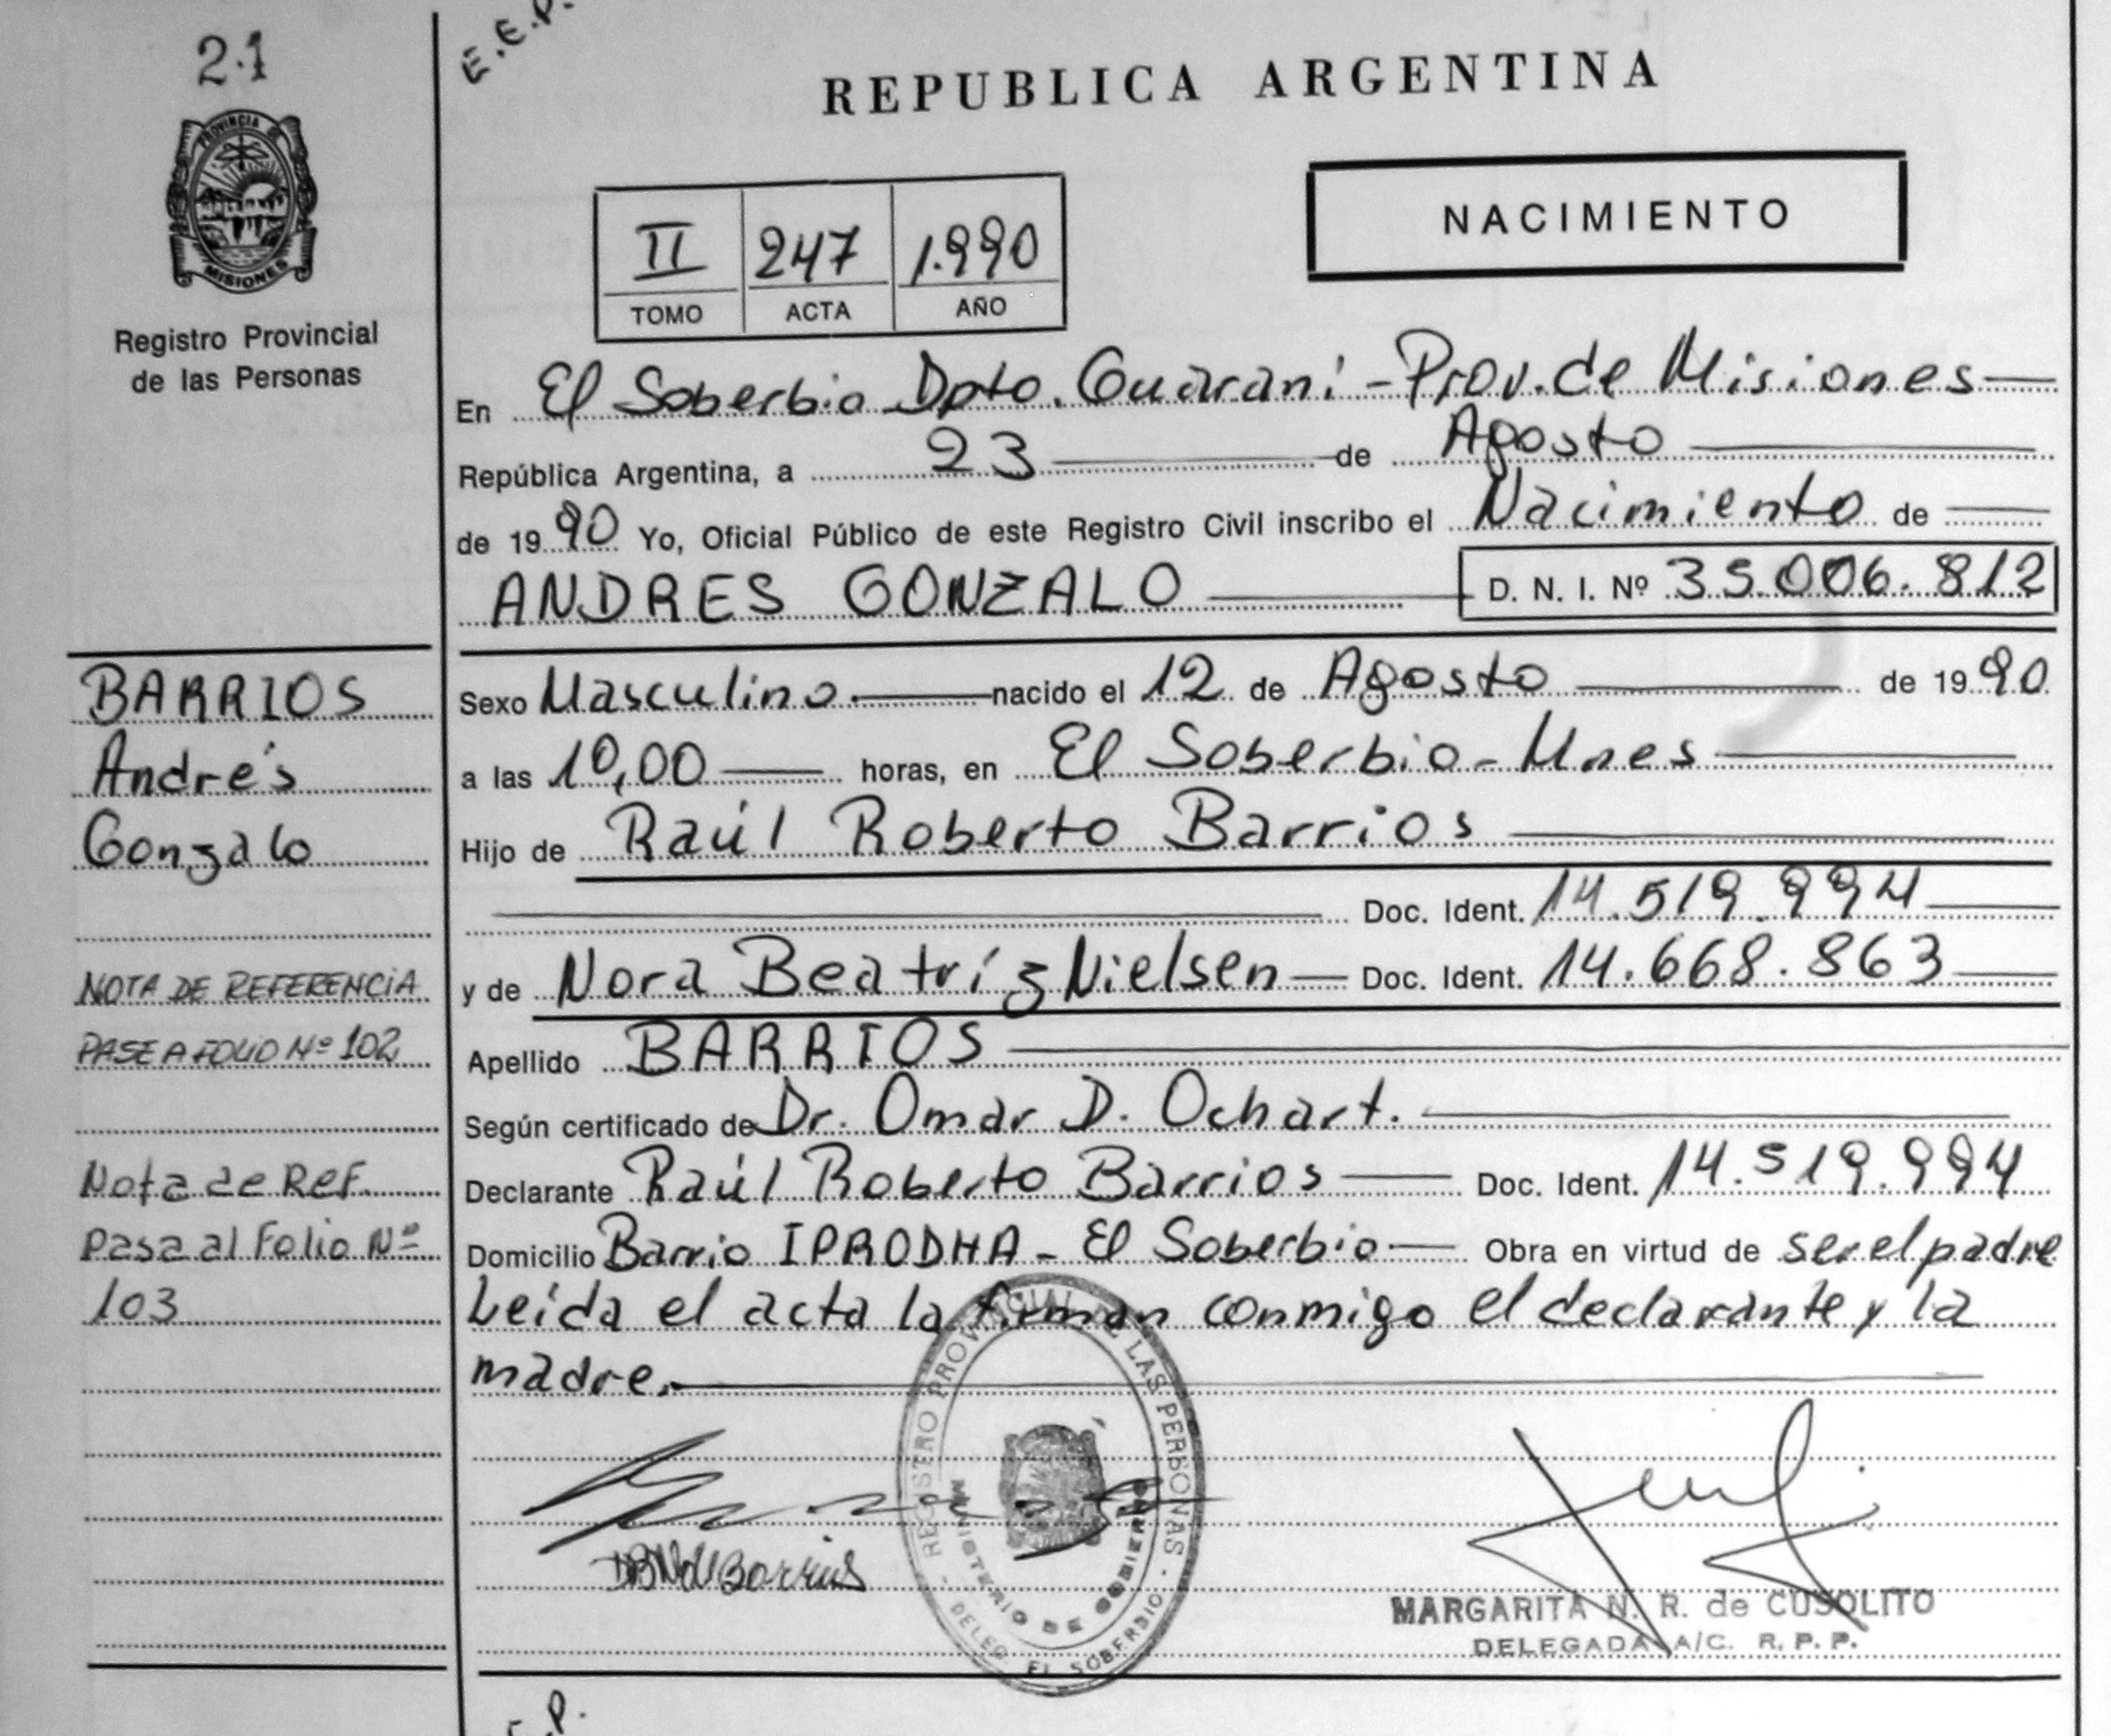 21
E.E.P.
REPUBLICA ARGENTINA
PROVINCIA DE
MISIONES
Registro Provincial
de las Personas
NACIMIENTO
II 247 1.990
TOMO ACTA AÑO
En El Soberbio Dpto. Guaraní - Prov. de Misiones
República Argentina, a 23 de Agosto
de 1990 Yo, Oficial Público de este Registro Civil inscribo el Nacimiento de
ANDRES GONZALO D. N. I. Nº 35.006.812
BARRIOS
Andrés
Gonzalo
NOTA DE REFERENCIA
PASE A FOLIO Nº 102
Nota de Ref.
pasa al Folio Nº
103
Sexo Masculino nacido el 12 de Agosto de 1990
a las 10,00 horas, en El Soberbio - Mnes
Hijo de Raúl Roberto Barrios
Doc. Ident. 14.519.994
y de Nora Beatríz Nielsen Doc. Ident. 14.668.863
Apellido BARRIOS
Según certificado de Dr. Omar D. Ochart.
Declarante Raúl Roberto Barrios Doc. Ident. 14.519.994
Domicilio Barrio IPRODHA - El Soberbio Obra en virtud de ser el padre
Leída el acta la firman conmigo el declarante y la
madre.
REGISTRO PROVINCIAL DE LAS PERSONAS - DELEG. EL SOBERBIO -
MINISTERIO DE GOBIERNO
MARGARITA N. R. de CUSOLITO
DELEGADA A/C. R. P. P.